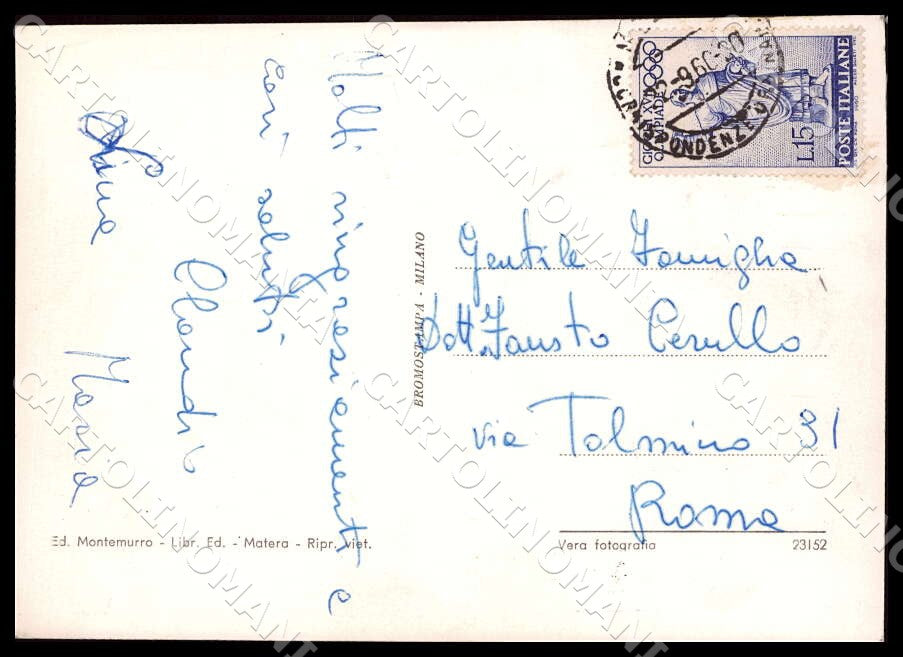 Molti ringraziamenti e
cari saluti.
Claudio
Maria
GIOCHI XVII
OLIMPIADE
L.15
POSTE ITALIANE
CORRISPONDENZE
BROMOSTAMPA - MILANO
Gentile Famiglia
Dott. Fausto Cerullo
via Tolmino 31
Roma
Ed. Montemurro - Libr. Ed. - Matera - Ripr. viet.
Vera fotografia
23152
CARTOLINOMANIA